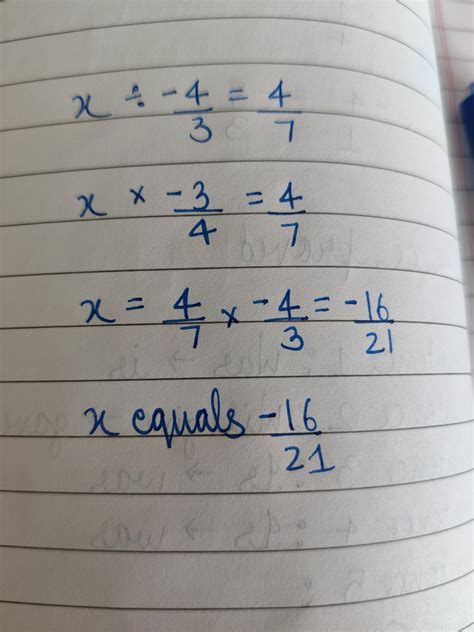 x ÷ -4/3 = 4/7
x × -3/4 = 4/7
x = 4/7 × -4/3 = -16/21
x equals -16/21